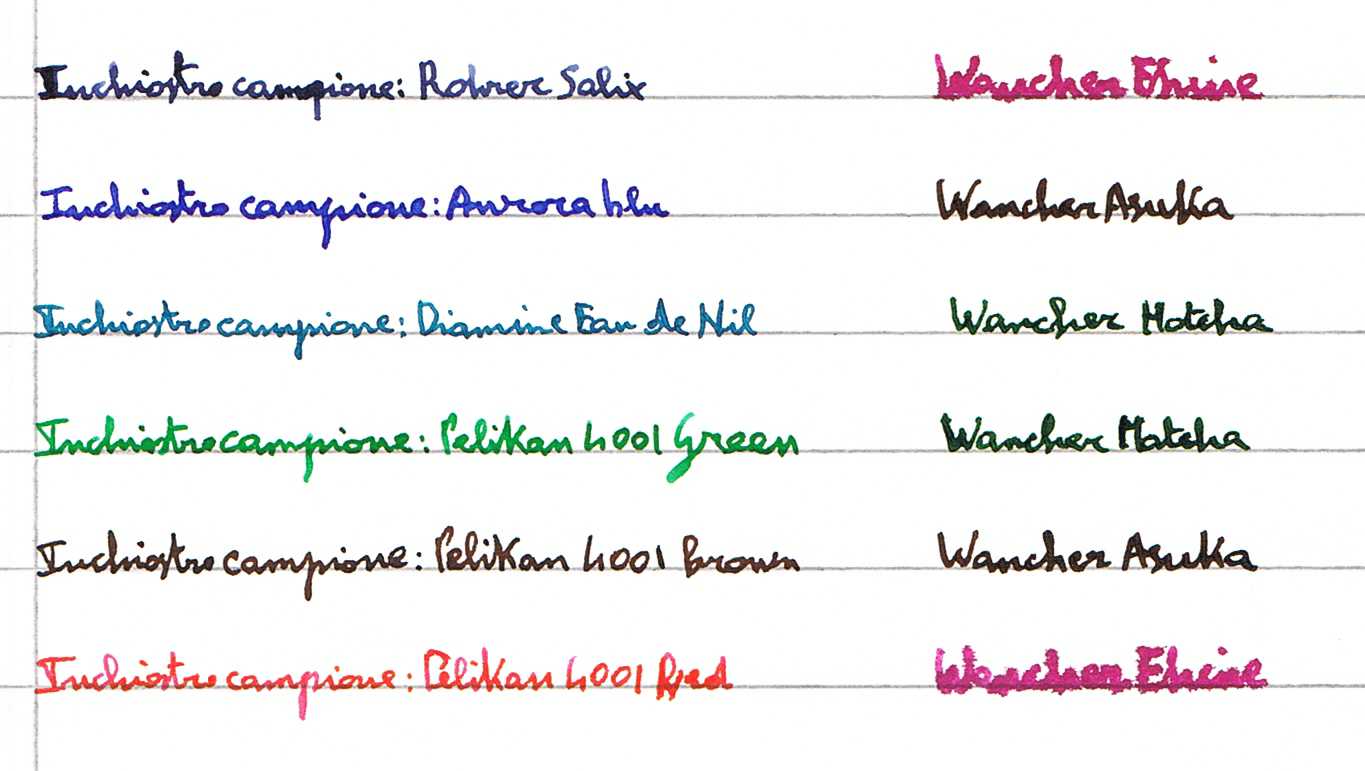 Inchiostro campione: Rohrer Salix Wancher Ehime
Inchiostro campione: Aurora blu Wancher Asuka
Inchiostro campione: Diamine Eau de Nil Wancher Matcha
Inchiostro campione: Pelikan 4001 Green Wancher Matcha
Inchiostro campione: Pelikan 4001 Brown Wancher Asuka
Inchiostro campione: Pelikan 4001 Red Wancher Ehime